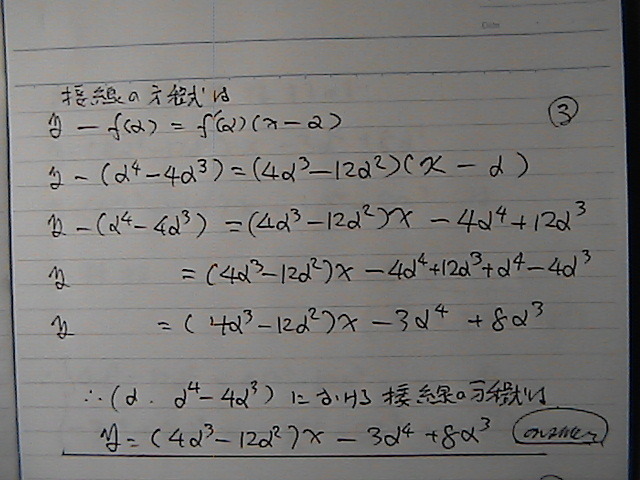 接線の方程式は
③
y - f(α) = f'(α)(x - α)
y - (α⁴ - 4α³) = (4α³ - 12α²)(x - α)
y - (α⁴ - 4α³) = (4α³ - 12α²)x - 4α⁴ + 12α³
y = (4α³ - 12α²)x - 4α⁴ + 12α³ + α⁴ - 4α³
y = (4α³ - 12α²)x - 3α⁴ + 8α³
∴ (α . α⁴ - 4α³) における 接線の方程式は
y = (4α³ - 12α²)x - 3α⁴ + 8α³ answer